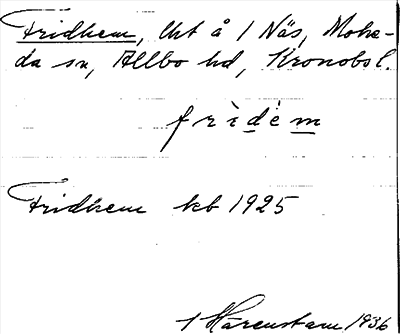 Fridhem, lht å 1 Näs, Mohe-
da sn, Allbo hd, Kronobs l.
frìdèm
Fridhem kb 1925
Härenstam 1936